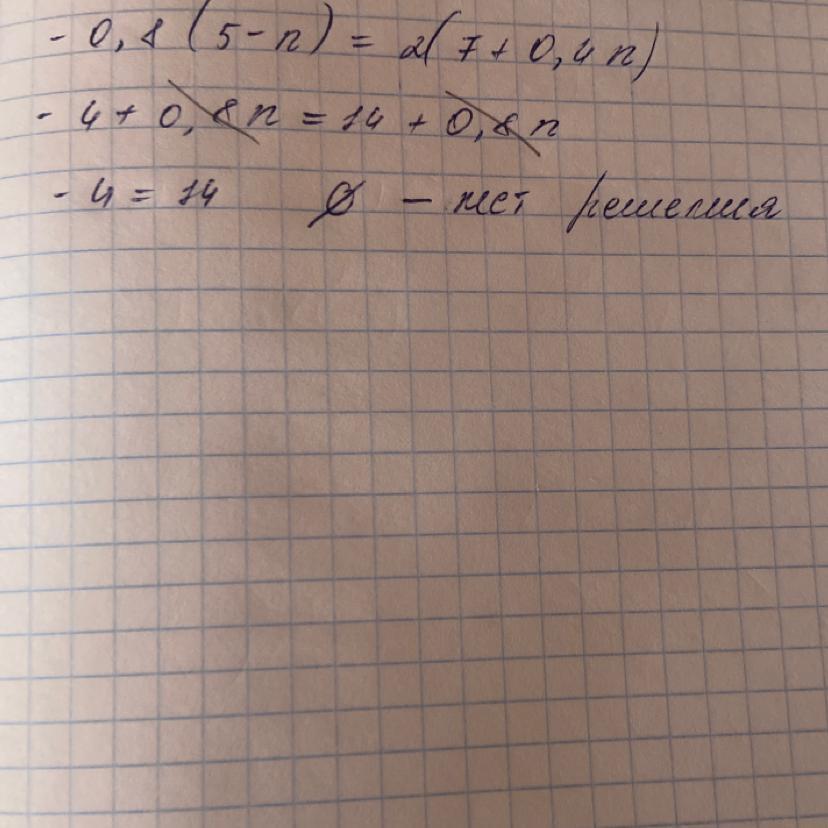 - 0,8 (5-n) = 2(7+0,4n)
- 4 + 0,8n = 14 + 0,8n
- 4 = 14 ∅ - нет решения